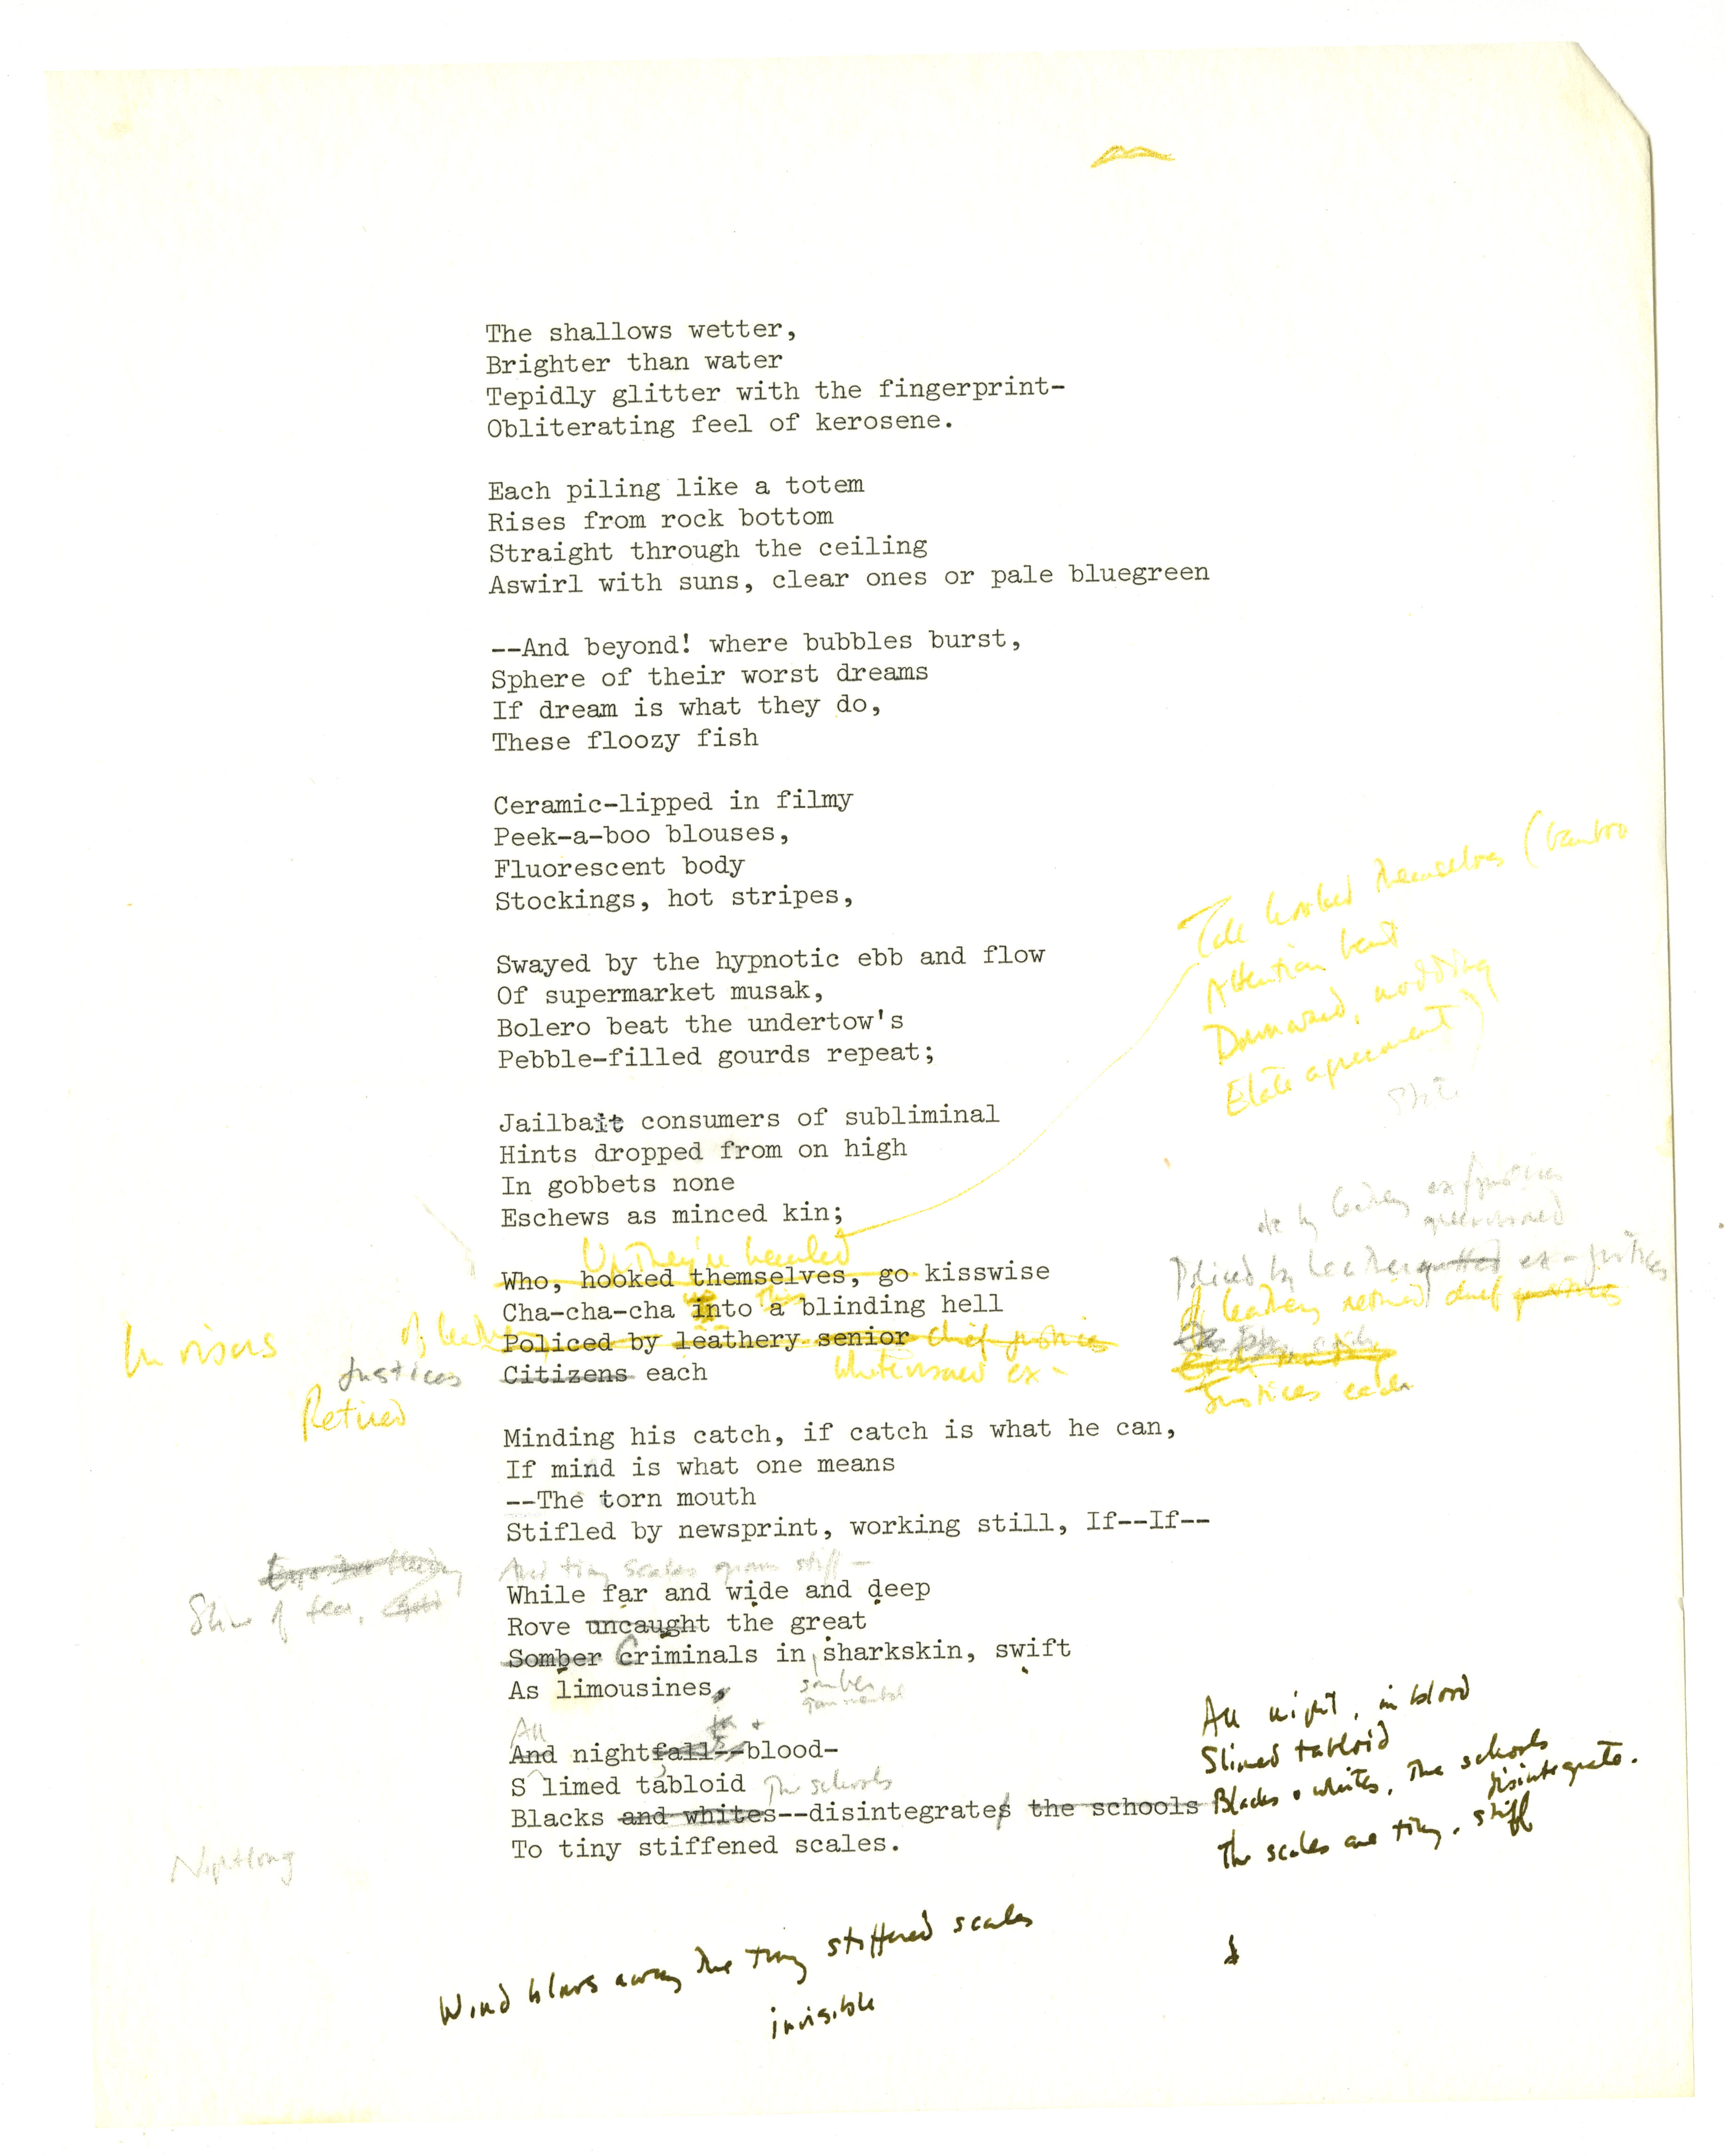 The shallows wetter,
Brighter than water
Tepidly glitter with the fingerprint-
Obliterating feel of kerosene.
Each piling like a totem
Rises from rock bottom
Straight through the ceiling
Aswirl with suns, clear ones or pale bluegreen
--And beyond! where bubbles burst,
Sphere of their worst dreams
If dream is what they do,
These floozy fish
Ceramic-lipped in filmy
Peek-a-boo blouses,
Fluorescent body
Stockings, hot stripes,
Swayed by the hypnotic ebb and flow
Of supermarket musak,
Bolero beat the undertow's
Pebble-filled gourds repeat;
Till hooked themselves (bamboo
Attention bent
Downward, nodding
Elate agreement)
Jailbait consumers of subliminal
Hints dropped from on high
In gobbets none
Eschews as minced kin;
Up they're hauled
Who, hooked themselves, go kisswise
Cha-cha-cha into a blinding hell
this
Policed by leathery senior chief justices
In visors
of leathery
Justices Citizens each
whitevisored ex-
Retired
Policed by ex-justices
of leathery retired chief justices
Justices each
Minding his catch, if catch is what he can,
If mind is what one means
--The torn mouth
Stifled by newsprint, working still, If--If--
And tiny scales grown stiff-
While far and wide and deep
Rove uncaught the great
Somber Criminals in sharkskin, swift
As limousines,
somber
All
And nightfall--blood-
S limed tabloid The schools
Blacks and whites--disintegrates the schools
To tiny stiffened scales.
All night, in blood
Slimed tabloid
Blacks & whites, the schools
disintegrate.
The scales are tiny, stiff
Nightlong
Wind blows away the tiny stiffened scales
invisible